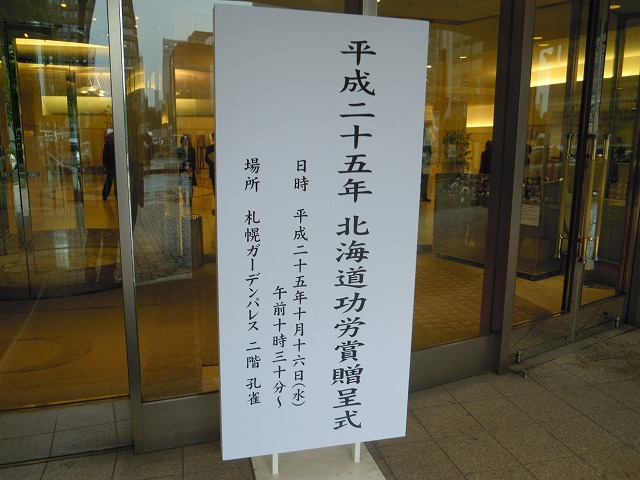 平成二十五年 北海道功労賞贈呈式
日時 平成二十五年十月十六日(水)
午前十時三十分~
場所 札幌ガーデンパレス 二階 孔雀